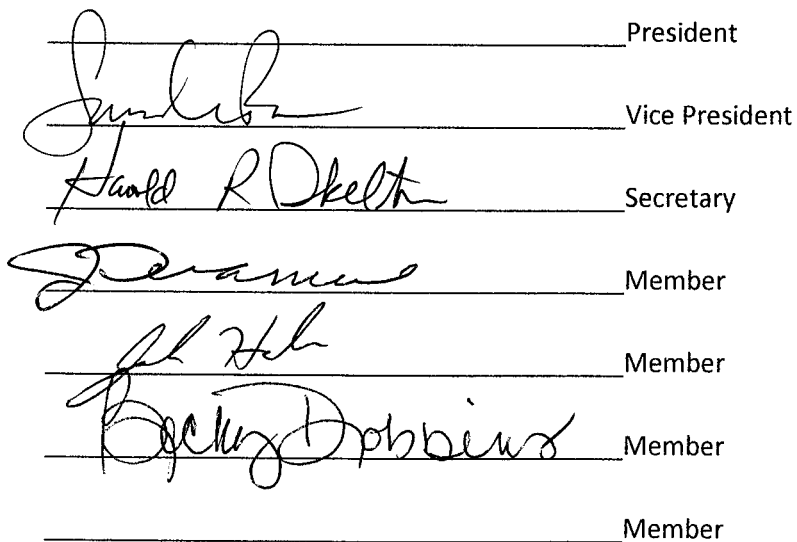 President
Vice President
Harold R Skelton Secretary
Member
Member
Becky Dobbins Member
Member